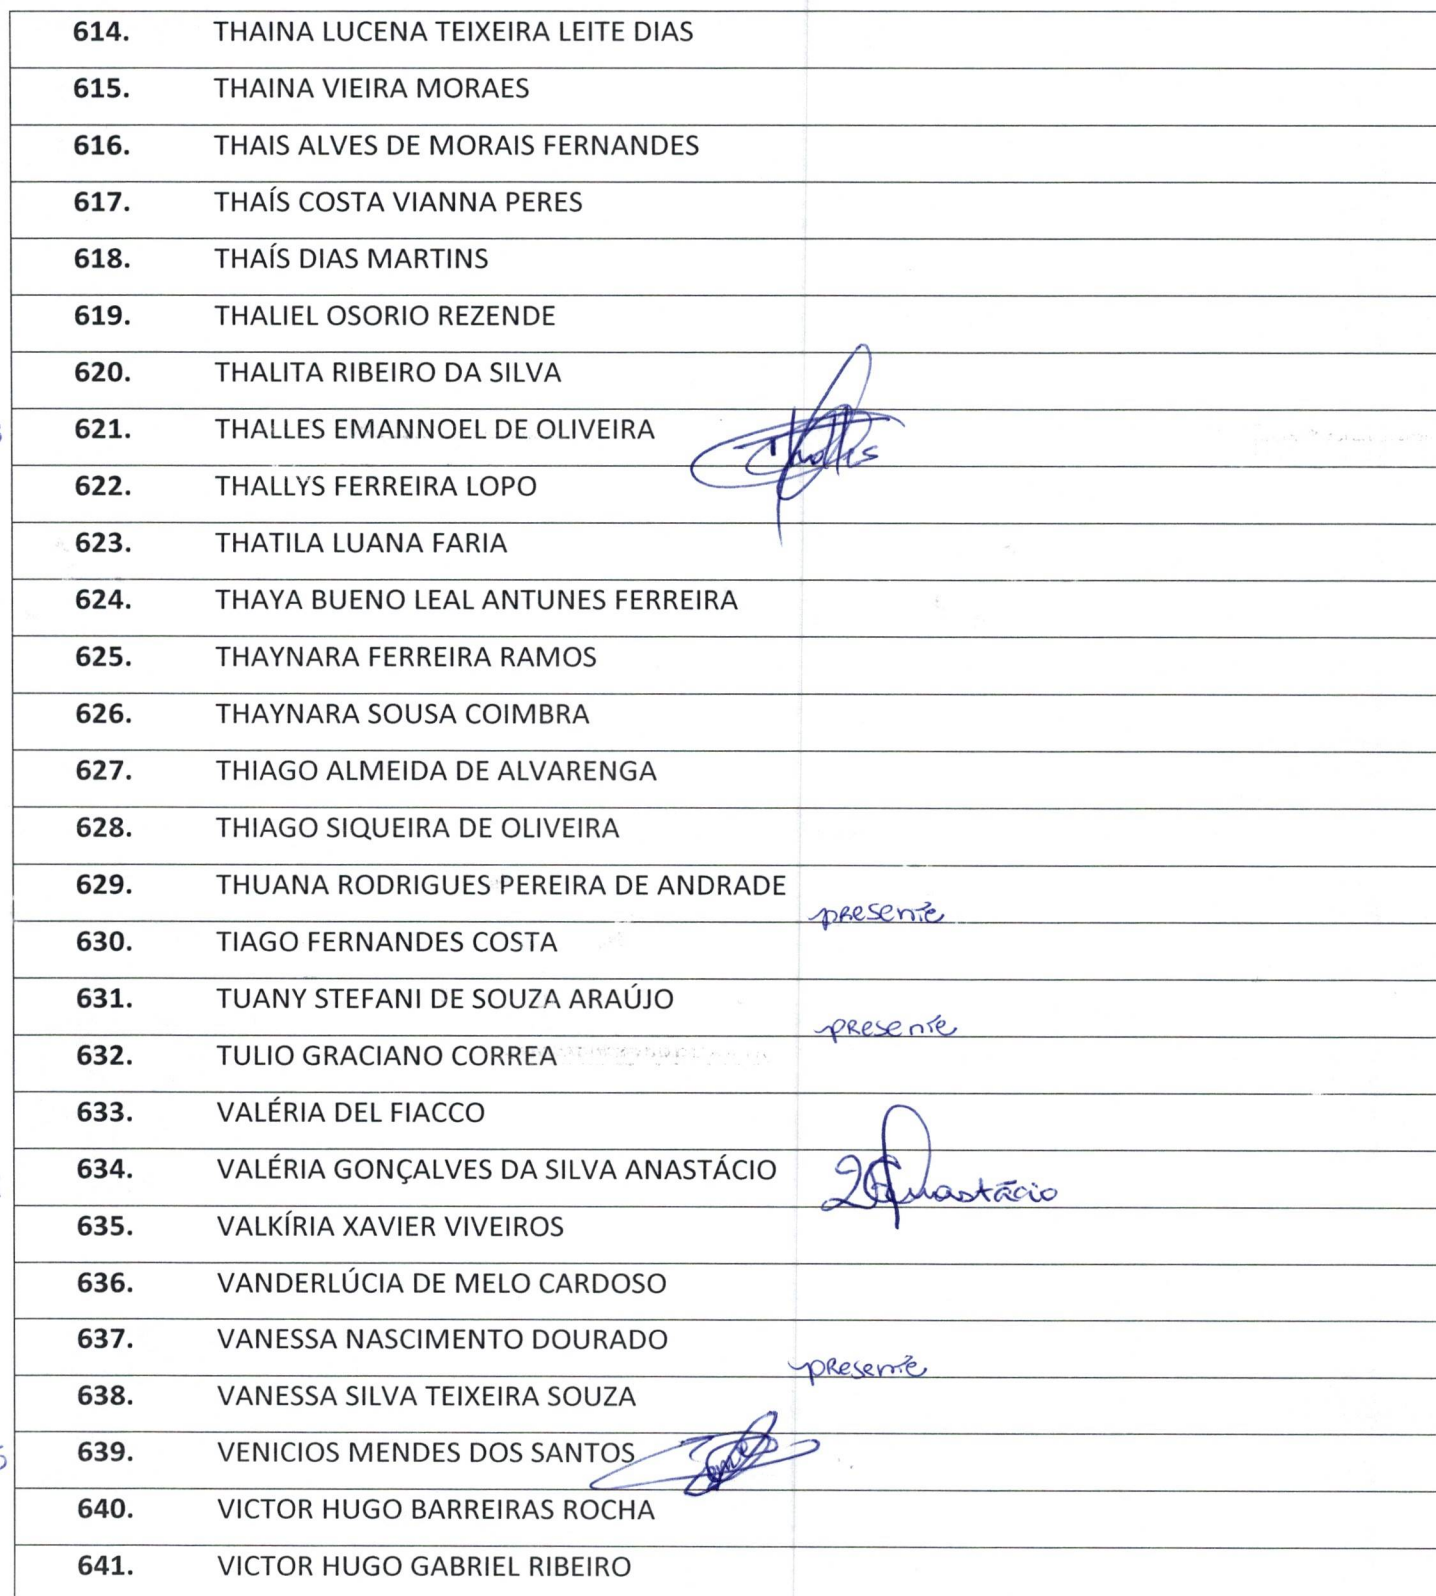 614. THAINA LUCENA TEIXEIRA LEITE DIAS
615. THAINA VIEIRA MORAES
616. THAIS ALVES DE MORAIS FERNANDES
617. THAÍS COSTA VIANNA PERES
618. THAÍS DIAS MARTINS
619. THALIEL OSORIO REZENDE
620. THALITA RIBEIRO DA SILVA
621. THALLES EMANNOEL DE OLIVEIRA Thalles
622. THALLYS FERREIRA LOPO
623. THATILA LUANA FARIA
624. THAYA BUENO LEAL ANTUNES FERREIRA
625. THAYNARA FERREIRA RAMOS
626. THAYNARA SOUSA COIMBRA
627. THIAGO ALMEIDA DE ALVARENGA
628. THIAGO SIQUEIRA DE OLIVEIRA
629. THUANA RODRIGUES PEREIRA DE ANDRADE
presente
630. TIAGO FERNANDES COSTA
631. TUANY STEFANI DE SOUZA ARAÚJO
presente
632. TULIO GRACIANO CORREA
633. VALÉRIA DEL FIACCO
634. VALÉRIA GONÇALVES DA SILVA ANASTÁCIO Anastácio
635. VALKÍRIA XAVIER VIVEIROS
636. VANDERLÚCIA DE MELO CARDOSO
637. VANESSA NASCIMENTO DOURADO
presente
638. VANESSA SILVA TEIXEIRA SOUZA
639. VENICIOS MENDES DOS SANTOS
640. VICTOR HUGO BARREIRAS ROCHA
641. VICTOR HUGO GABRIEL RIBEIRO